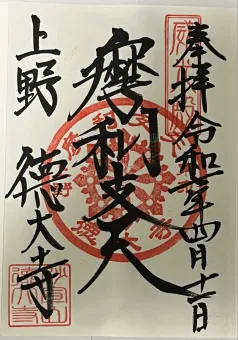 奉拝 令和二年四月十一日
摩利支天
上野 德大寺